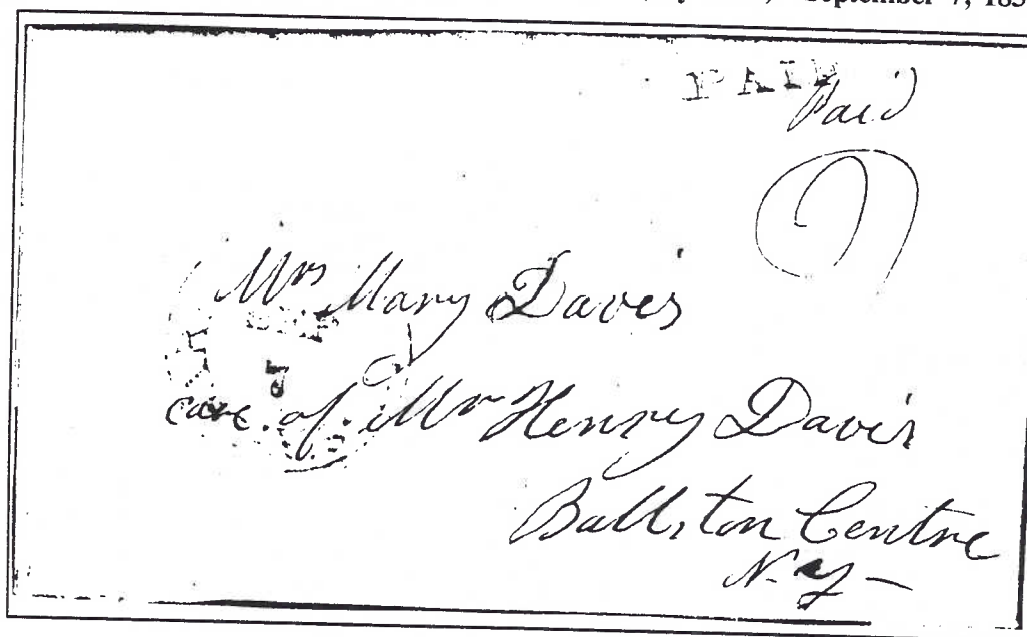 September 7, 185
PAID
Paid
Mrs Mary Davis
SEP
7
care of Mr Henry Davis
Ballston Centre
N.Y—